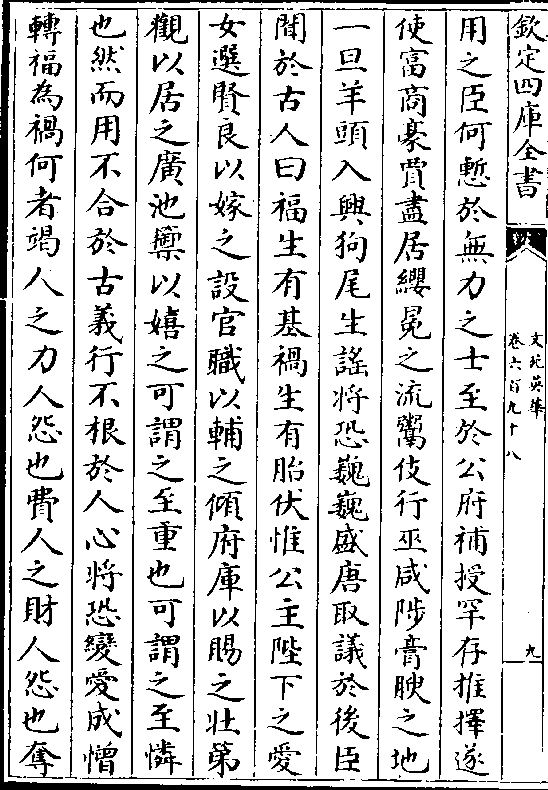 欽定四庫全書
文苑英華
卷六百九十八
九
用之臣何慙於無力之士至於公府補授罕存推擇遂
使富商豪賈盡居纓冕之流鬻伎行巫咸陟膏腴之地
一旦羊頭入興狗尾生謡将恐巍巍盛唐取議於後臣
聞於古人曰福生有基禍生有胎伏惟公主陛下之愛
女選賢良以嫁之設官職以輔之傾府庫以賜之壮第
觀以居之廣池籞以嬉之可謂之至重也可謂之至憐
也然而用不合於古義行不根於人心将恐變愛成憎
轉福為禍何者竭人之力人怨也費人之財人怨也奪